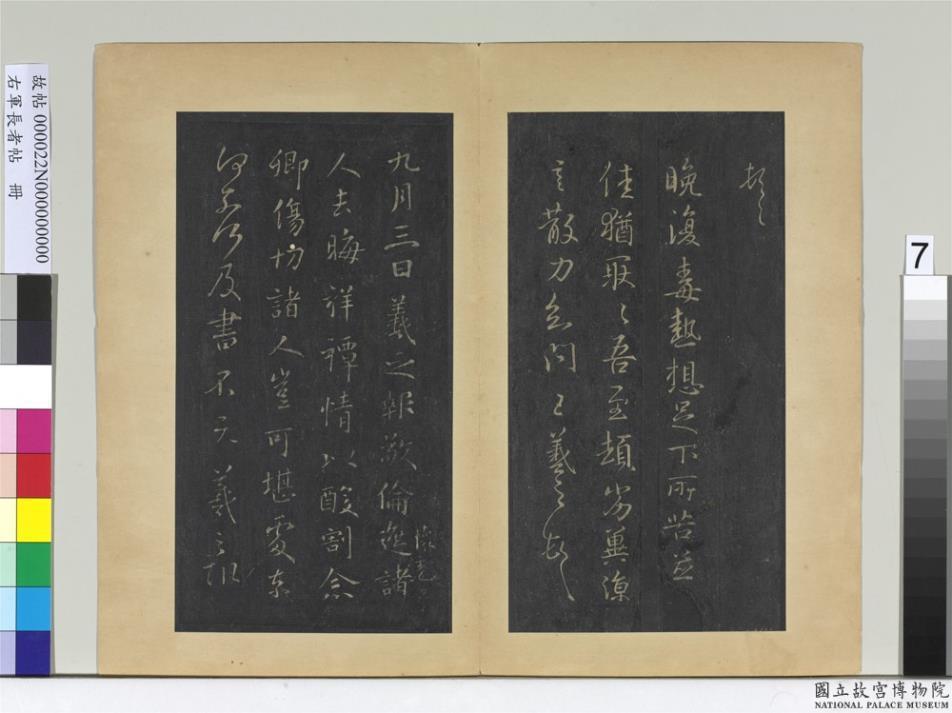 故帖 000022N000000000
右軍長者帖 冊
7
頓首
晚復毒熱想足下所苦並
佳猶耿〻吾至頓劣冀涼
言散力知問羲之頓首
九月三日羲之報敬倫遮諸
人去晦祥禫情以酸割念
卿傷切諸人豈可堪處奈
何奈何及書不羲之報
國立故宮博物院
NATIONAL PALACE MUSEUM